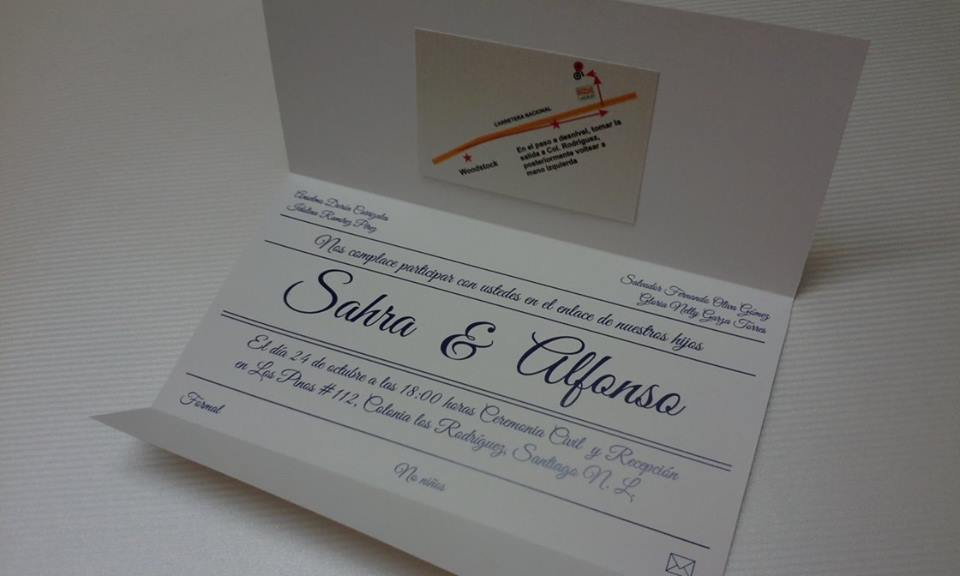 CARRETERA NACIONAL
Woodstock
En el paso a desnivel, tomar la
salida a Col. Rodríguez,
posteriormente voltear a
mano izquierda
Anselmo Durán
Ramírez Pérez
Salvador Fernando Oliva Gómez
Gloria Nelly Garza Torres
Nos complace participar con ustedes en el enlace de nuestros hijos
Sahra & Alfonso
El día 24 de octubre a las 18:00 horas Ceremonia Civil y Recepción
en Los Pinos #112, Colonia los Rodríguez, Santiago N. L.
Formal
No niños